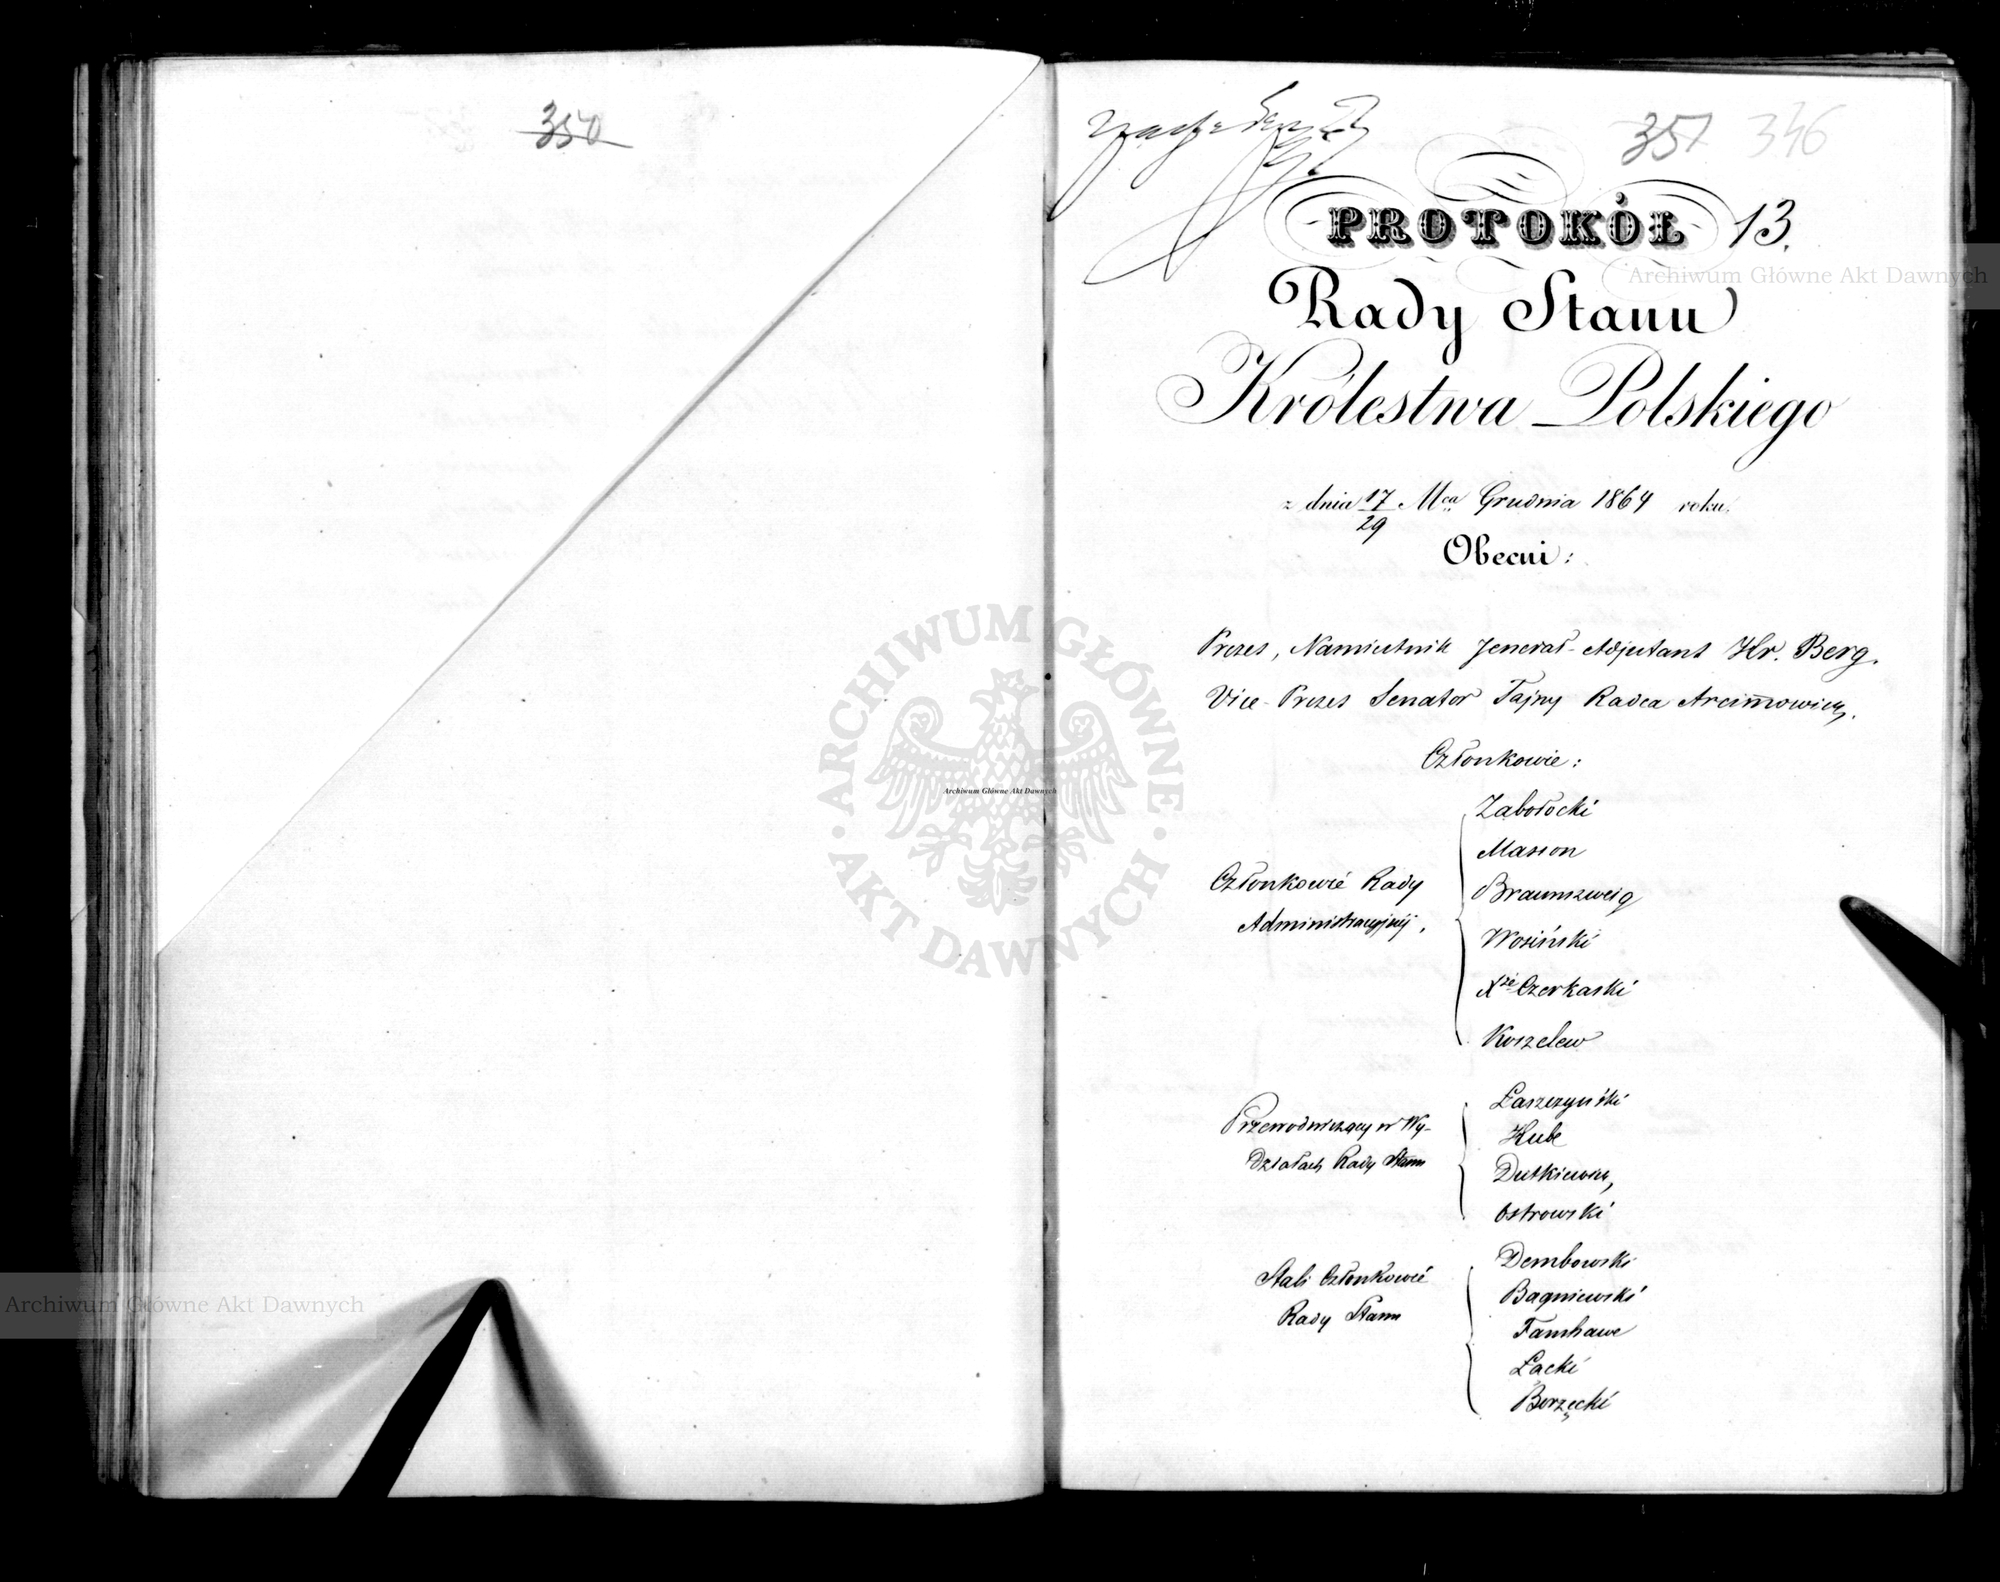 350
351 346
PROTOKÓŁ 13.
Rady Stanu
Królestwa Polskiego
z dnia 17/29 Mca Grudnia 1864 roku.
Obecni:
Prezes, Namiestnik Jenerał-Adjutant Hr. Berg.
Vice-Prezes Senator Tajny Radca Arcimowicz.
Członkowie:
Członkowie Rady
Administracyjnéj.
Zabołocki
Masson
Braunszweig
Wosiński
Xże Czerkaski
Koszelew
Przewodniczący w Wy-
działach Rady Stanu
Łaszczyński
Hube
Dutkiewicz
Ostrowski
Stali Członkowie
Rady Stanu
Dembowski
Bagniewski
Fanshawe
Łacki
Borzęcki
Archiwum Główne Akt Dawnych
ARCHIWUM GŁÓWNE
AKT DAWNYCH
Archiwum Główne Akt Dawnych
Archiwum Główne Akt Dawnych